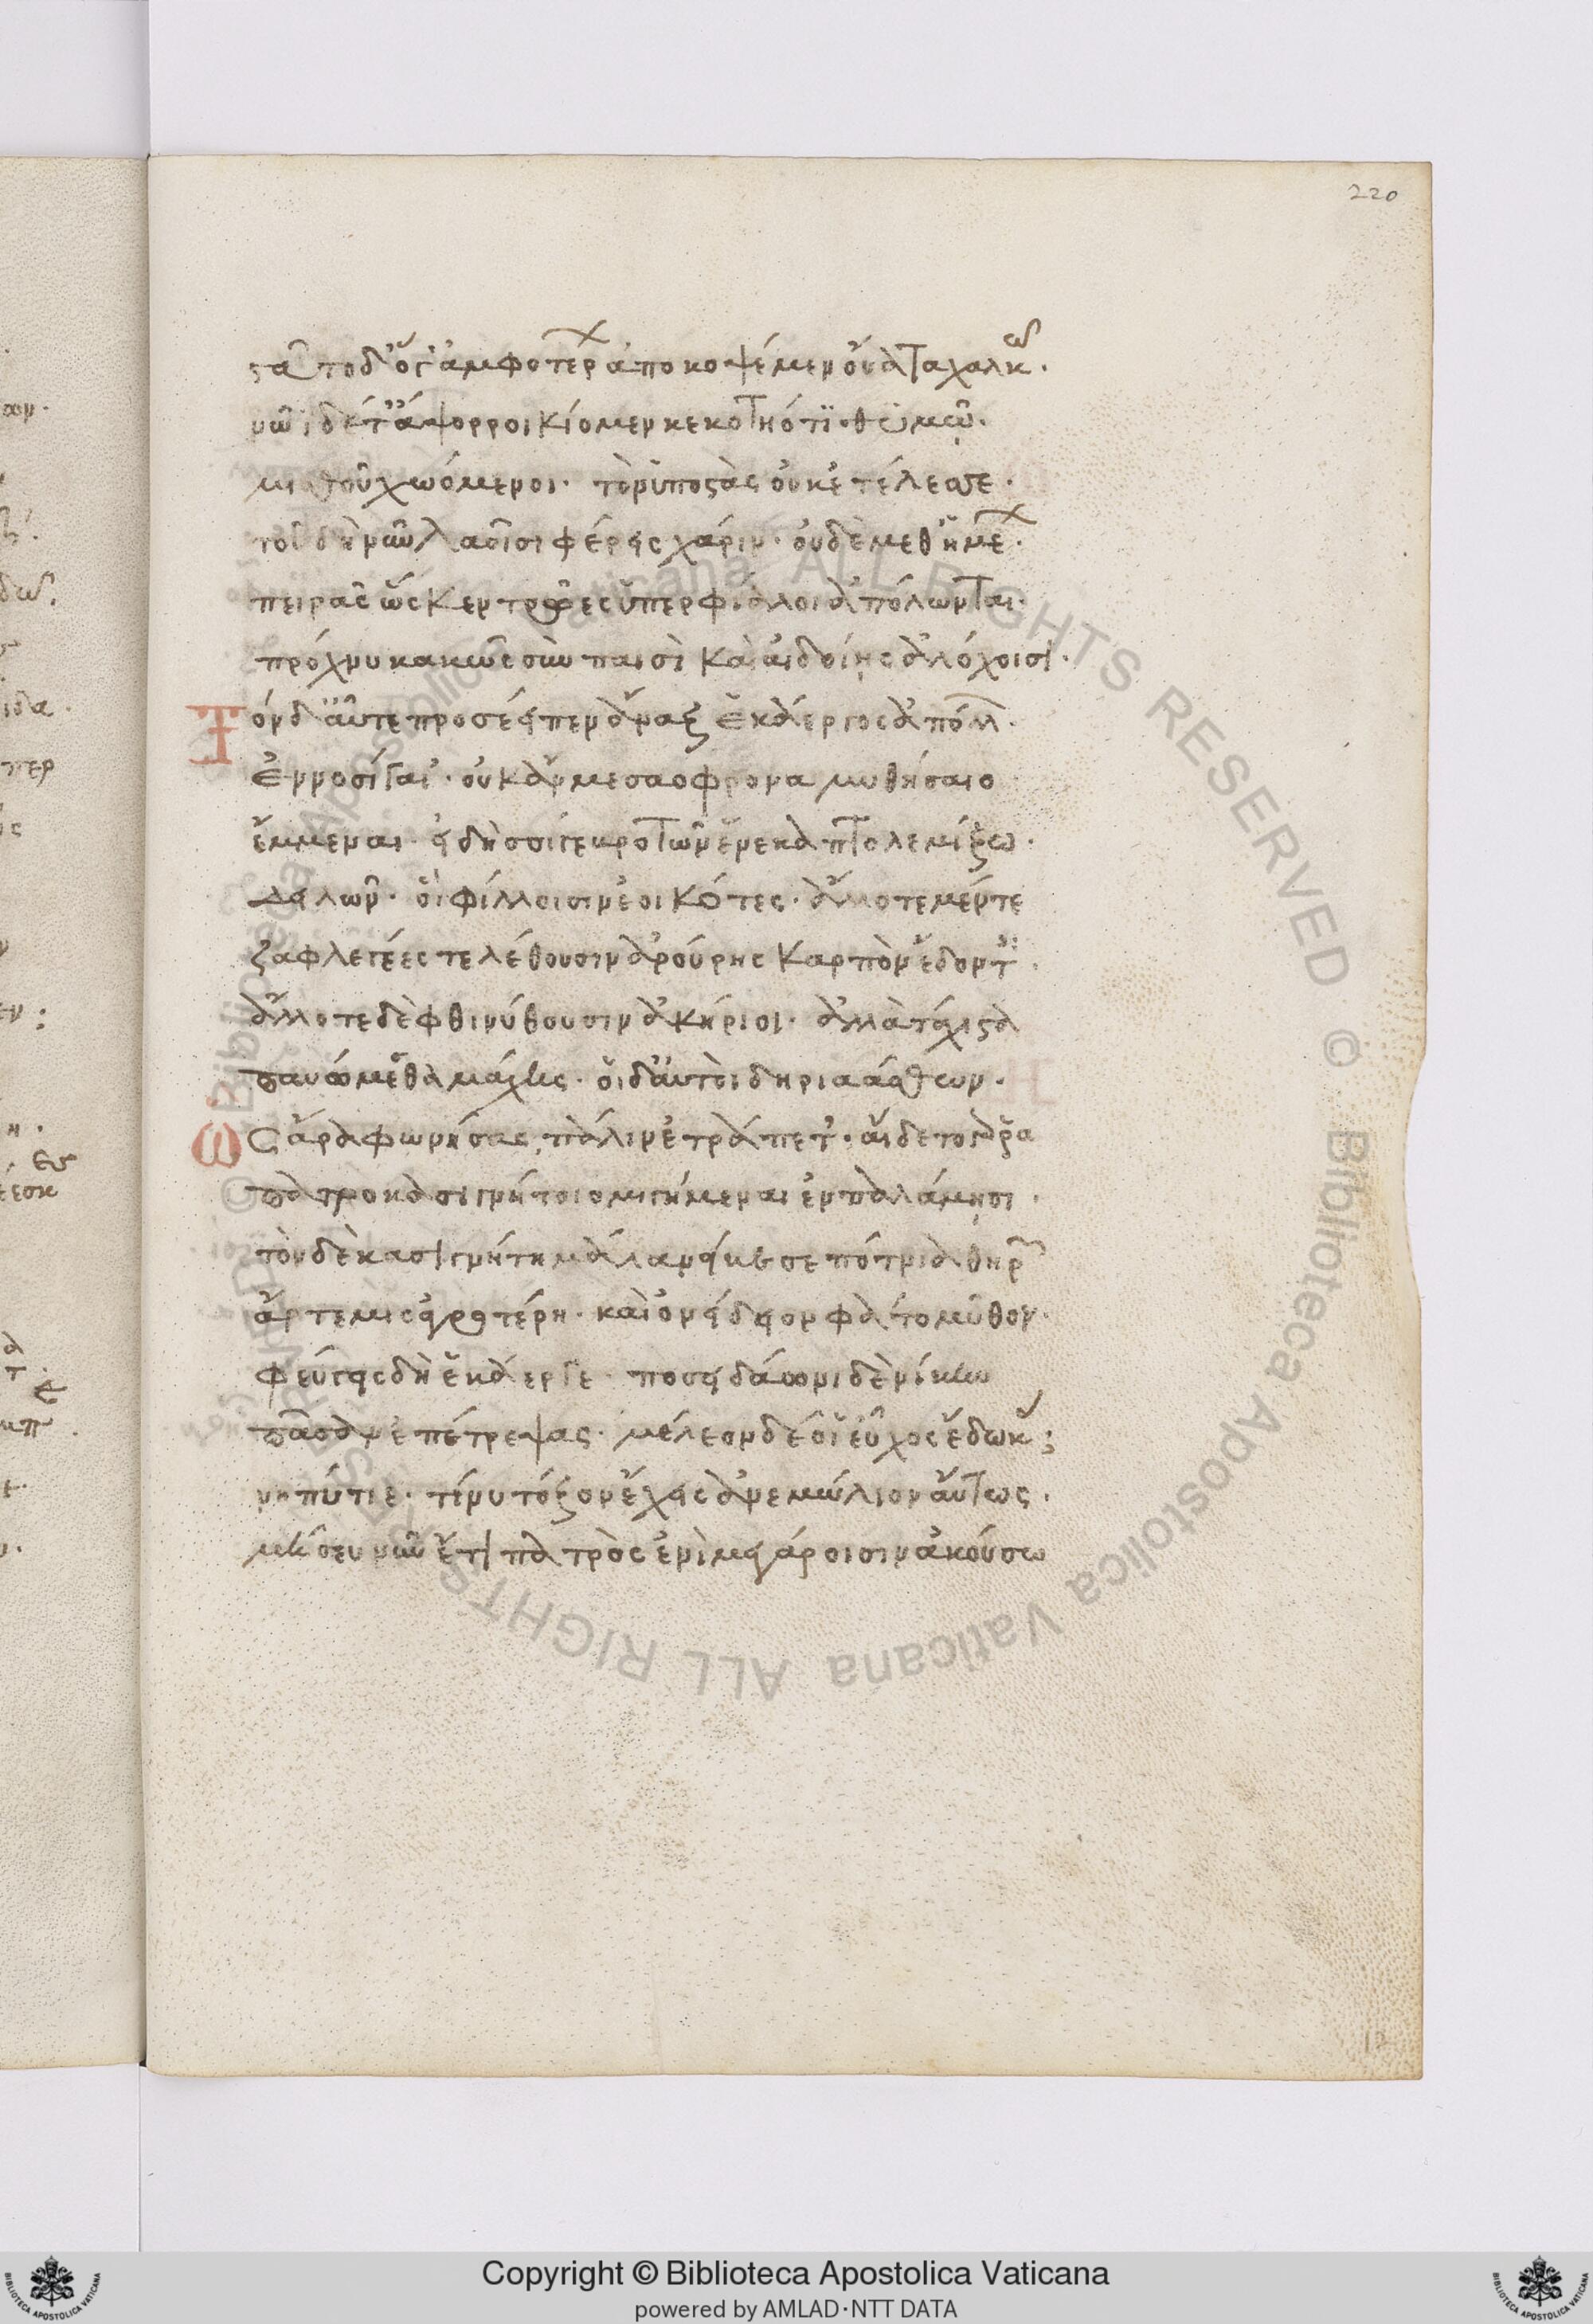 220
στᾶτο δ' ὅγ' ἀμφοτέρων ἀποκοψέμεν οὔατα χαλκῶ.
νῶϊ δέ τ' ἄψορροι κίομεν κεκοτηότι θυμῶ.
μισθοῦ χωόμενοι. τὸν ὑποστὰς οὐκ ἐτέλεσσε.
τοῦ δὴ νῦν λαοῖσι φέρεις χάριν. οὐδὲ μεθ' ἡμέων.
πειρᾶς ὥς κεν τρῶες ὑπερφίαλοι ἀπόλωνται.
πρόχνυ κακῶς σὺν παισὶ καὶ αἰδοίης ἀλόχοισι.
Τόνδ' αὖτε προσέειπεν ἄναξ ἑκάεργος ἀπόλλ.
ἐννοσίγαι'. οὐκ ἄν με σαόφρονα μυθήσαιο
ἔμμεναι. εἰ δὴ σοίγε βροτῶν ἕνεκα πτολεμίξω.
δειλῶν. οἳ φύλλοισιν ἐοικότες. ἄλλοτε μέν τε
ζαφλεγέες τελέθουσιν ἀρούρης καρπὸν ἔδοντες.
ἄλλοτε δὲ φθινύθουσιν ἀκήριοι. ἀλλὰ τάχιστα
παυώμεθα μάχης. οἱ δ' αὐτοὶ δηριαάσθων.
Ὣς ἄρα φωνήσας πάλιν ἐτράπετ'. αἴδετο γάρ ῥα
πατροκασιγνήτοιο μιγήμεναι ἐν παλάμησι.
τὸν δὲ κασιγνήτη μάλα νείκεσε πότνια θηρῶν
ἄρτεμις ἀγροτέρη. καὶ ὀνείδειον φάτο μῦθον.
φεύγεις δὴ ἑκάεργε. ποσειδάωνι δὲ νίκην
πᾶσαν ἐπέτρεψας. μέλεον δέ οἱ εὖχος ἔδωκας;
νηπύτιε. τί νυ τόξον ἔχεις ἀνεμώλιον αὔτως.
μή σευ νῦν ἔτι πατρὸς ἐνὶ μεγάροισιν ἀκούσω
Copyright © Biblioteca Apostolica Vaticana
powered by AMLAD·NTT DATA